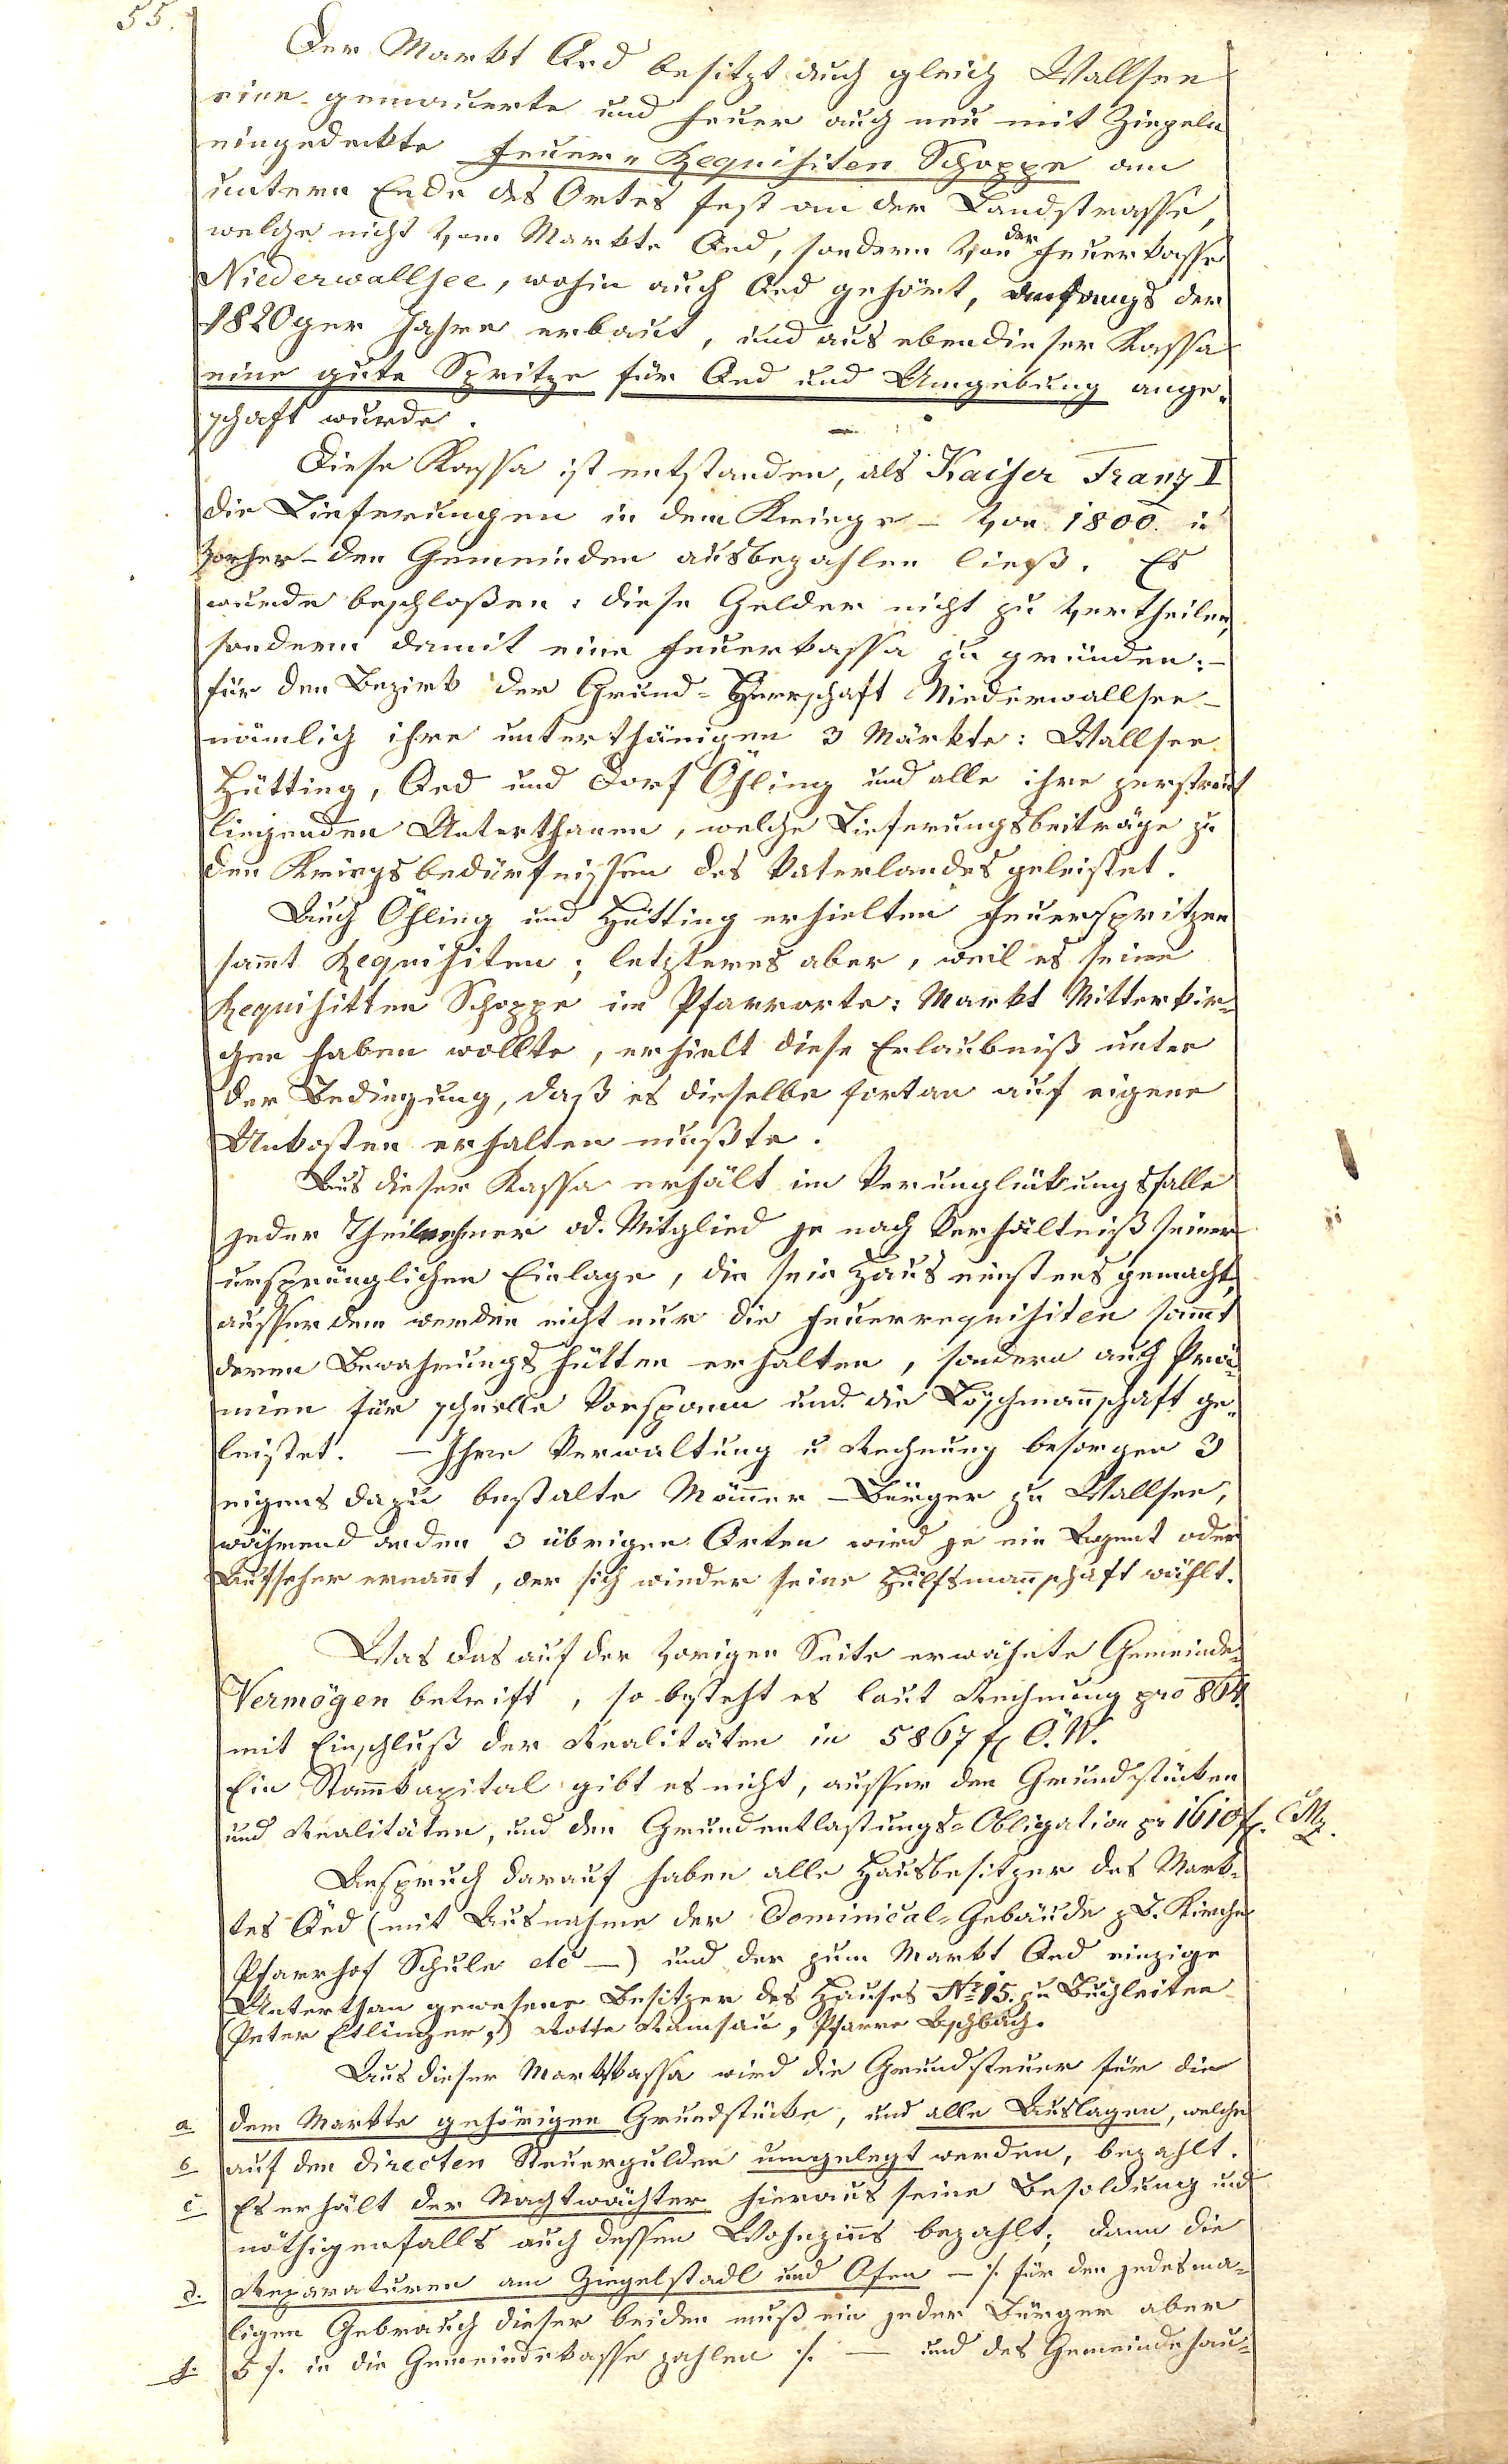 55.
Der Markt Aed besitzt auch gleich Wallsee
eine gemauerte und heuer auch neu mit Ziegeln
eingedeckte Feuer-Requisiten Schoppe am
untern Ende des Ortes fest an der Landstrasse,
welche nicht vom Markte Aed, sondern von der Feuerkasse
Niederwallsee, wohin auch Aed gehört, anfangs der
1820ger Jahre erbaut, und aus ebendieser Kassa
eine gute Spritze für Aed und Umgebung ange-
schaft wurde.
Diese Kassa ist entstanden, als Kaiser Franz II
die Lieferungen in dem Kriege – von 1800. u
vorher – den Gemeinden ausbezahlen ließ. Es
wurde beschloßen: diese Gelder nicht zu vertheilen,
sondern damit eine Feuerkassa zu gründen: –
für den Bezirk der Grund-Herrschaft Niederwallsee –
nämlich ihre unterthänigen 3 Märkte: Wallsee
Hütting, Aed und Dorf Öhling und alle ihre zerstreut
liegenden Unterthanen, welche Lieferungsbeiträge zu
den Kriegsbedürfnissen des Vaterlandes geleistet.
Auch Öhling und Hütting erhielten Feuerspritzen
sammt Requisiten; letzteres aber, weil es seine
Requisitten Schoppe im Pfarrorte: Markt Mitterkir-
chen haben wollte, erhielt diese Erlaubniß unter
der Bedingung, daß es dieselbe fortan auf eigene
Unkosten erhalten mußte.
Aus dieser Kassa erhält im Verunglückungsfalle
jeder Theilnehmer od. Mitglied je nach Verhältniß seiner
ursprünglichen Einlage, die sein Haus einstens gemacht,
ausserdem werden nicht nur die Feuerrequisiten sammt
deren Bewahrungshütten erhalten, sondern auch Prä-
mien für schnelle Vorspann und die Löschmannschaft ge-
leistet. – Ihre Verwaltung u Rechnung besorgen 3
eigens dazu bestalte Männer – Bürger zu Wallsee,
während anden 3 übrigen Orten wird je ein Agent oder
Aufseher ernannt, der sich wieder seine Hülfsmannschaft wählt.
Was das auf der vorigen Seite erwähnte Gemeinde-
Vermögen betrift, so besteht es laut Rechnung pro 864.
mit Einschluß der Realitäten in 5867 f Ö.W.
Ein Stammkapital gibt es nicht, ausser den Grundstücken
und Realitäten, und den Grundentlastungs-Obligation pr 1610 f. CMz.
Anspruch darauf haben alle Hausbesitzer des Mark-
tes Aed (mit Ausnahme der Dominical-Gebäude z.B. Kirche
Pfarrhof Schule etc –) und der zum Markt Aed einzige
Unterthan gewesene Besitzer des Hauses Nr 15. zu Buchleiten
(Peter Etlinger,) Rotte Ramsau, Pfarre Aschbach.
Aus dieser Marktkassa wird die Grundsteuer für die
a dem Markte gehörigen Grundstücke, und alle Auslagen, welche
b auf den directen Steuergulden umgelegt werden, bezahlt.
c Es erhält der Nachtwächter hieraus seine Besoldung und
nöthigenfalls auch dessen Wohnzinns bezahlt; dann die
d. Reparaturen am Ziegelstadl und Ofen – /: für den jedesma-
ligen Gebrauch dieser beiden muß ein jeder Bürger aber
f. 5 f. in die Gemeindekasse zahlen :/. – und des Gemeindehau-